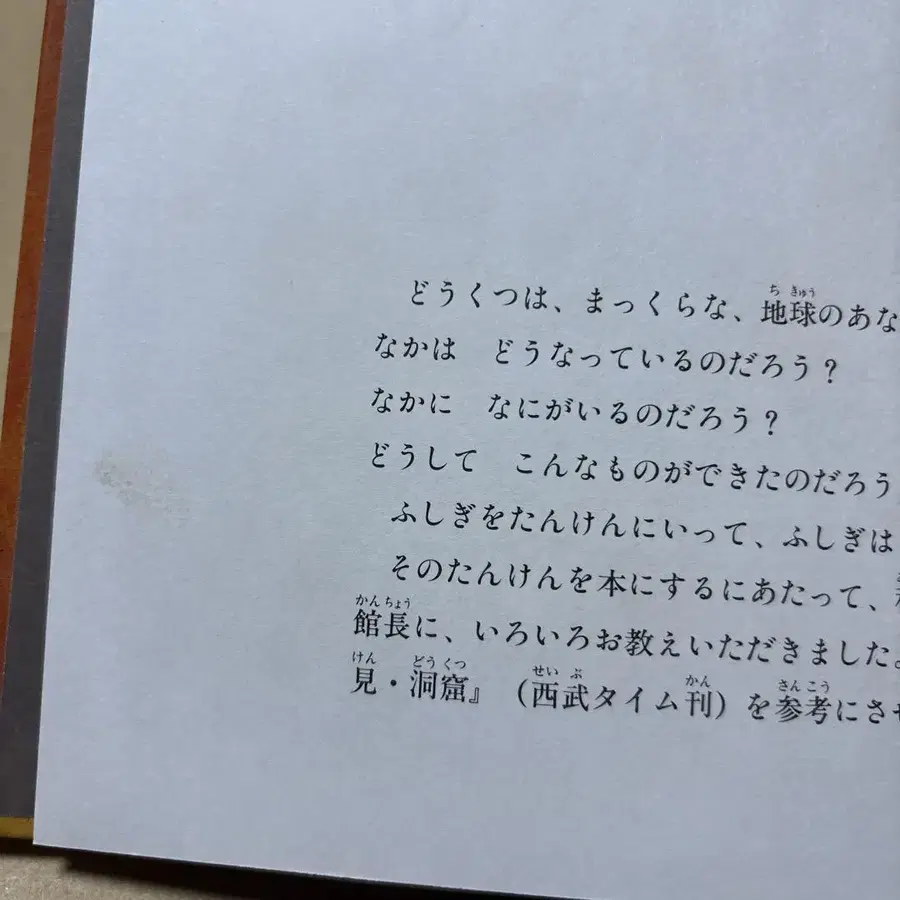 どうくつは、まっくらな、地球のあな
なかは　どうなっているのだろう？
なかに　なにがいるのだろう？
どうして　こんなものができたのだろう
ふしぎをたんけんにいって、ふしぎは
そのたんけんを本にするにあたって、
館長に、いろいろお教えいただきました。
見・洞窟』（西武タイム刊）を参考にさ